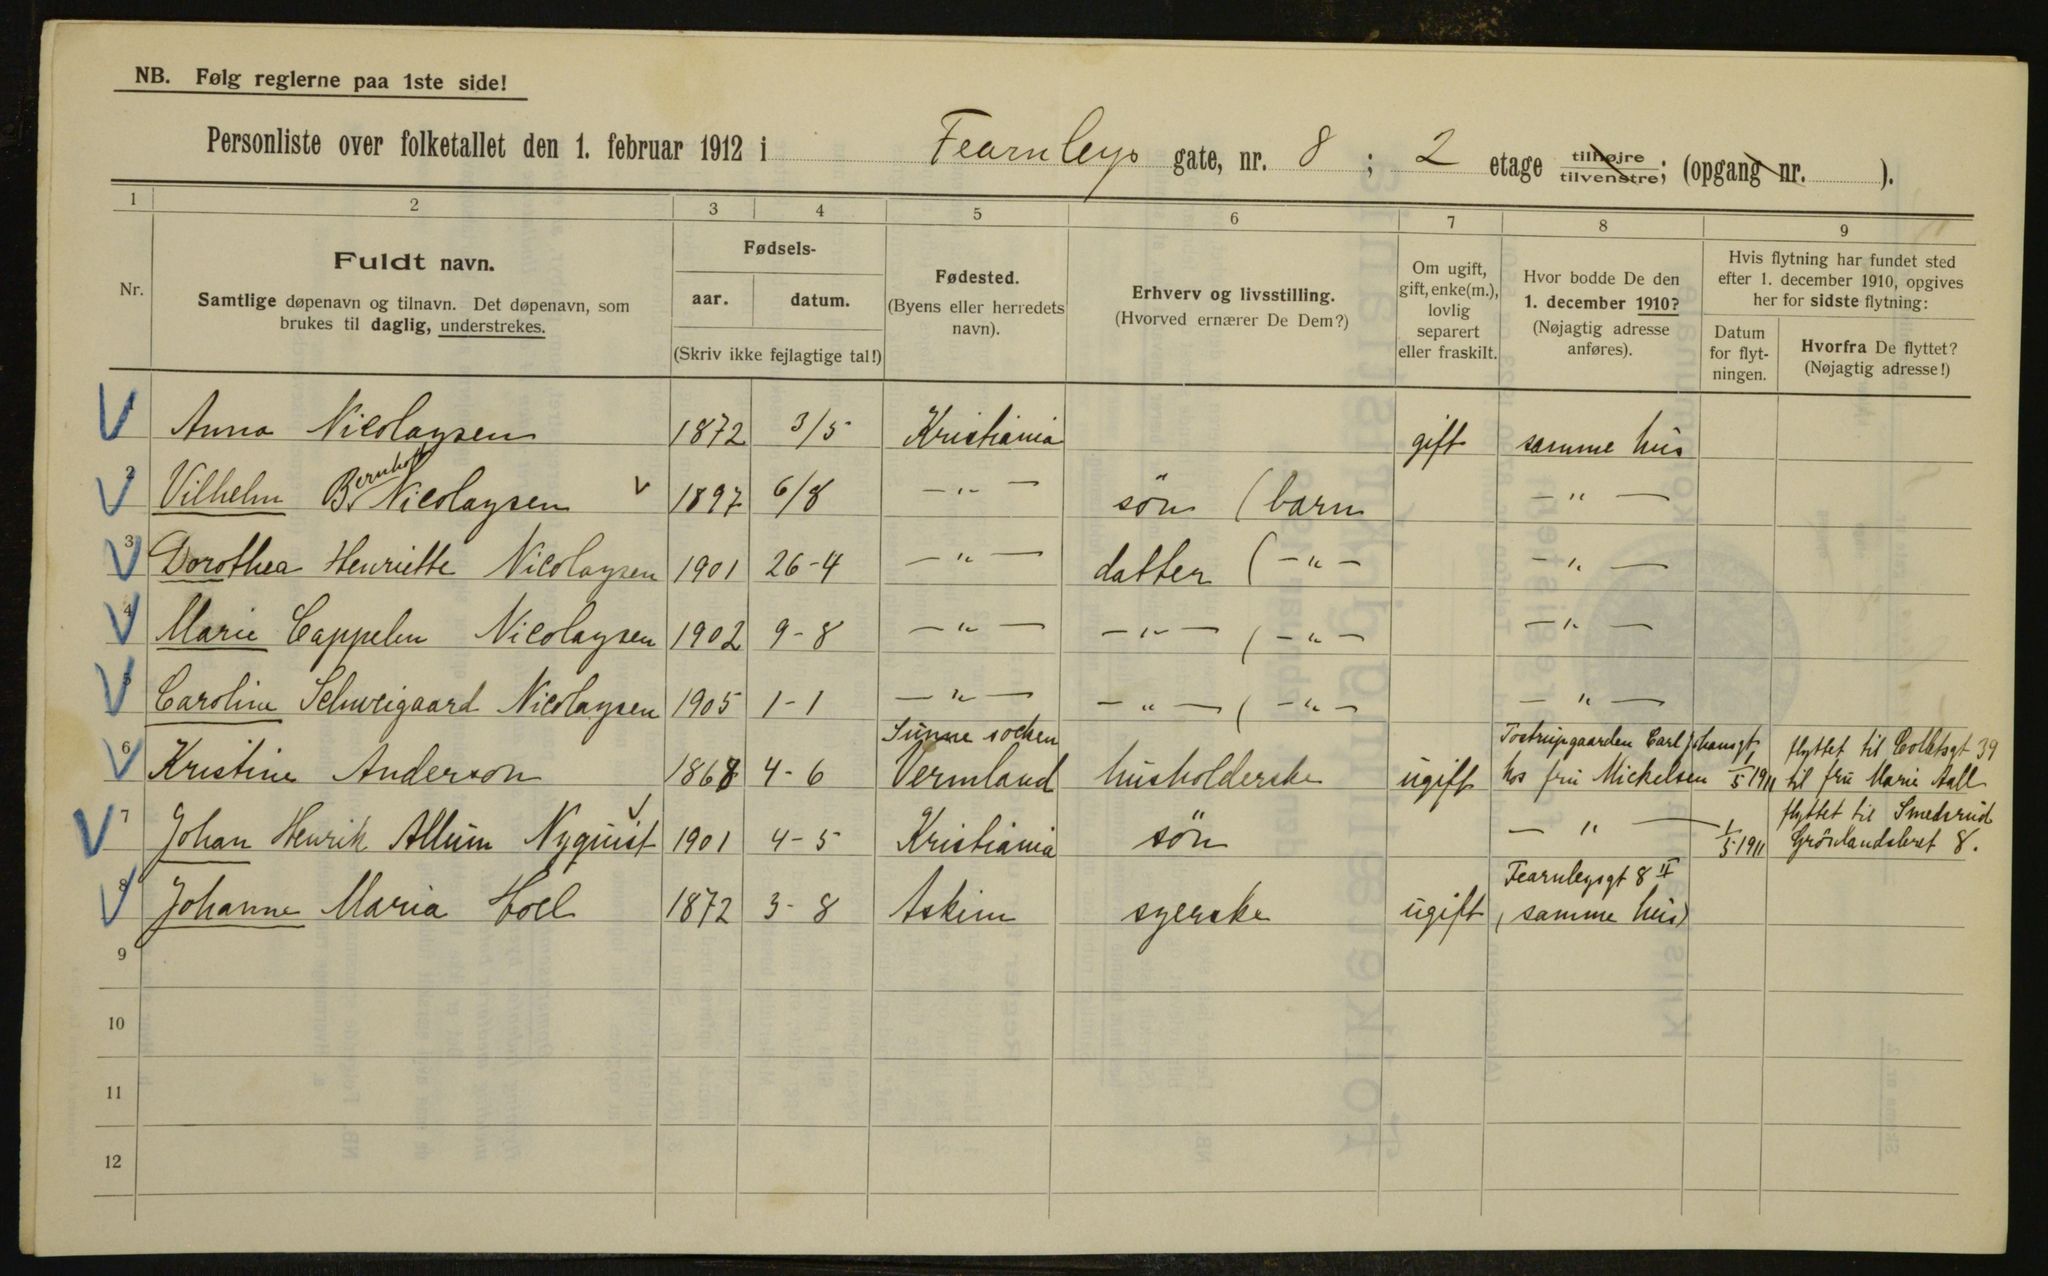 NB. Følg reglerne paa 1ste side!
Personliste over folketallet den 1. februar 1912 i Fearnleys gate, nr. 8 ; 2 etage tilhøjre tilvenstre; (opgang nr. ).
1 2 3 4 5 6 7 8 9
Nr.
Fuldt navn.
Samtlige døpenavn og tilnavn. Det døpenavn, som
brukes til daglig, understrekes.
Fødsels-
aar. datum.
(Skriv ikke fejlagtige tal!)
Fødested.
(Byens eller herredets
navn).
Erhverv og livsstilling.
(Hvorved ernærer De Dem?)
Om ugift,
gift, enke(m.),
lovlig
separert
eller fraskilt.
Hvor bodde De den
1. december 1910?
(Nøjagtig adresse
anføres).
Hvis flytning har fundet sted
efter 1. december 1910, opgives
her for sidste flytning:
Datum
for flyt-
ningen.
Hvorfra De flyttet?
(Nøjagtig adresse!)
1 Anna Nicolaysen 1872 3/5 Kristiania gift samme hus
2 Vilhelm Bernhoft Nicolaysen 1897 6/8 — " — søn (barn — " —
3 Dorothea Henriette Nicolaysen 1901 26-4 — " — datter ( — " — — " —
4 Marie Cappelen Nicolaysen 1902 9-8 — " — — " — ( — " — — " —
5 Caroline Schweigaard Nicolaysen 1905 1-1 — " — — " — ( — " — — " —
Sunne socken Tostrupgaarden Carl Johansgt flyttet til Coletsgt 39
6 Kristine Anderson 1868 4-6 Vermland husholderske ugift hos fru Mickelsen 1/5 1911 til fru Marie Aall
flyttet til Smedsrud
7 Johan Henrik Allum Nyquist 1901 4-5 Kristiania søn — " — 1/5 1911 Grönlandsleret 8.
Fearnleysgt 8 II
8 Johanne Maria Hoel 1872 3-8 Askim syerske ugift (samme hus)
9
10
11
12